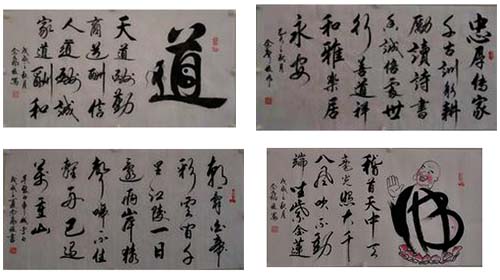 道
天道酬勤
商道酬信
人道酬誠
家道酬和
忠厚傳家
千古訓
勵讀詩書
行善道祥
和雅樂居
永安
朝辭白帝
彩雲間千
里江陵一日
還兩岸猿
聲啼不住
輕舟已過
萬重山
稽首天中天
毫光照大千
八風吹不動
端坐紫金蓮